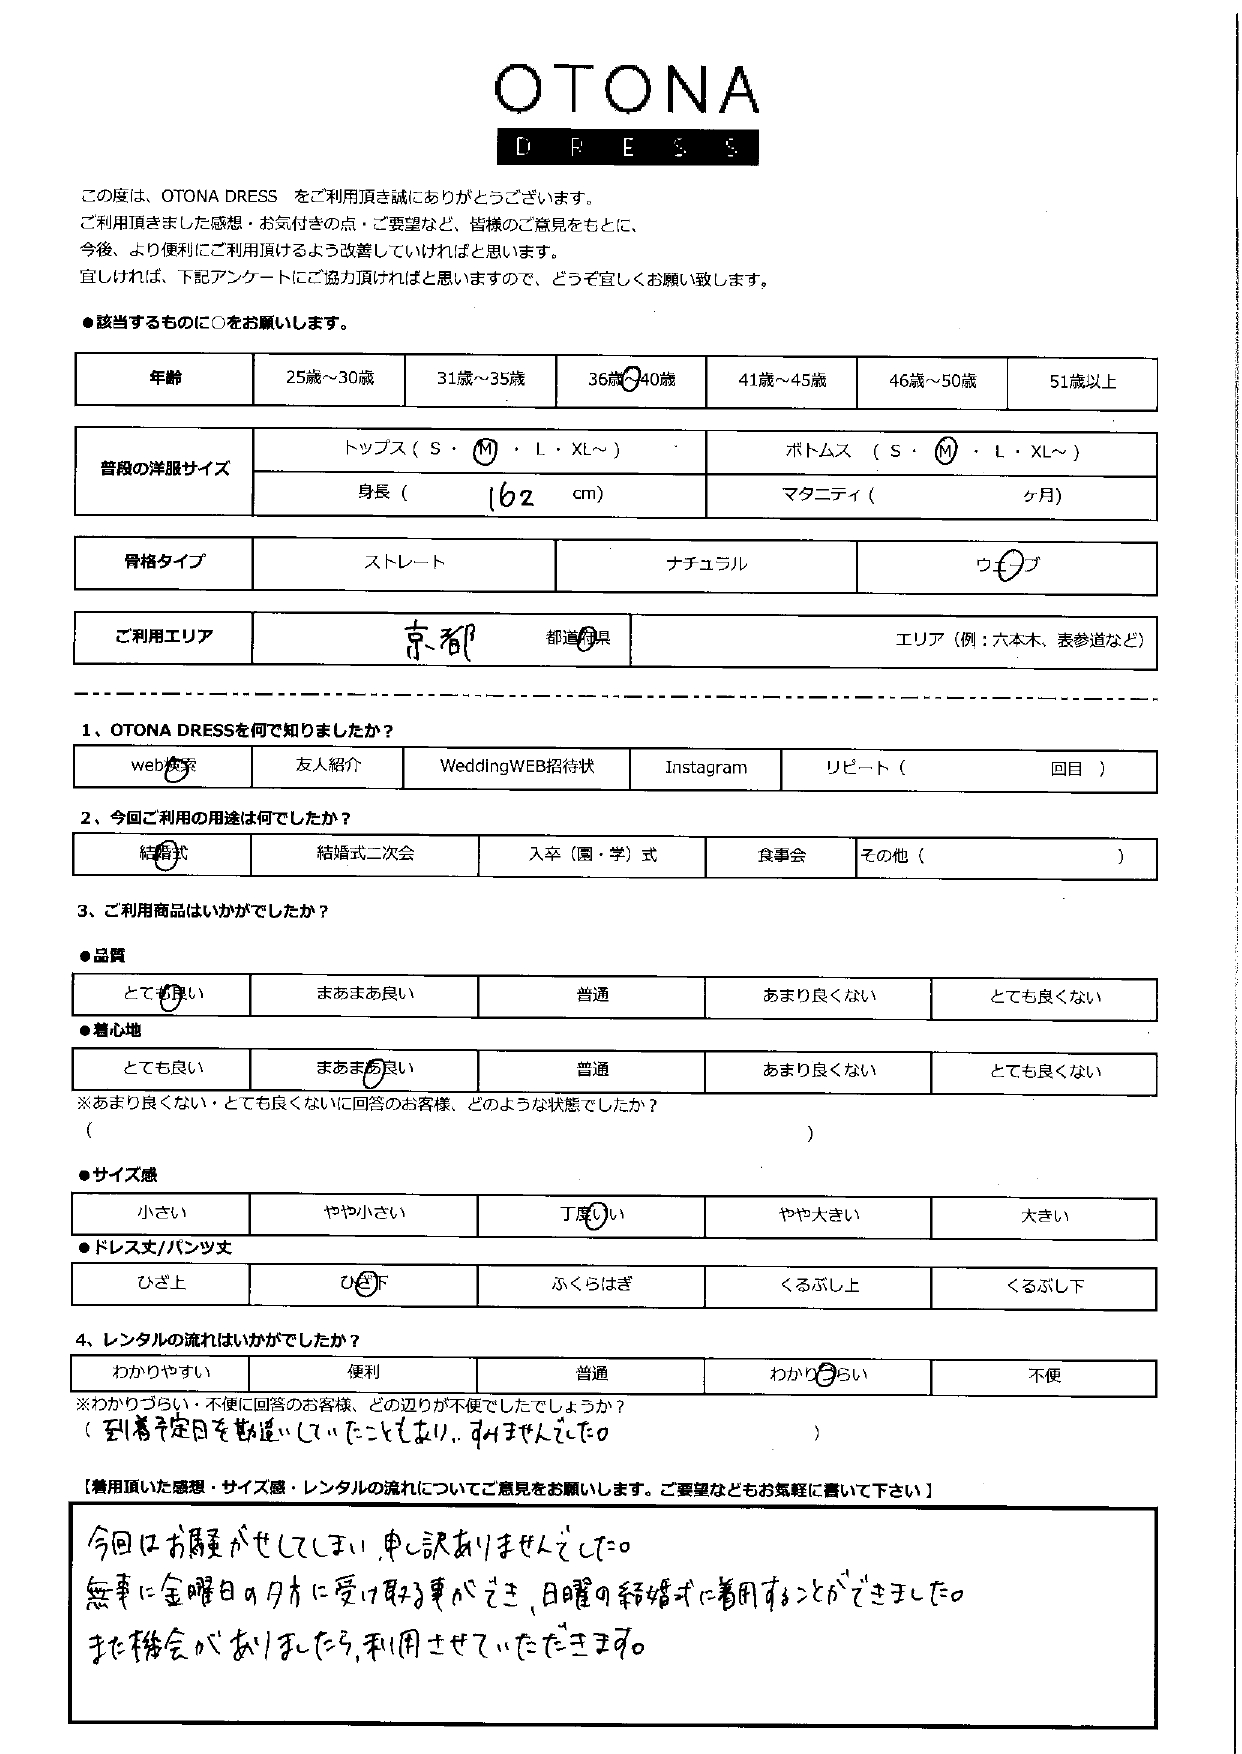 OTONA
DRESS
この度は、OTONA DRESS　をご利用頂き誠にありがとうございます。
ご利用頂きました感想・お気付きの点・ご要望など、皆様のご意見をもとに、
今後、より便利にご利用頂けるよう改善していければと思います。
宜しければ、下記アンケートにご協力頂ければと思いますので、どうぞ宜しくお願い致します。
●該当するものに○をお願いします。
年齢 25歳～30歳 31歳～35歳 36歳～40歳 41歳～45歳 46歳～50歳 51歳以上
普段の洋服サイズ トップス ( S ・ M ・ L ・ XL～ ) ボトムス ( S ・ M ・ L ・ XL～ )
身長 ( 162 cm) マタニティ ( ヶ月)
骨格タイプ ストレート ナチュラル ウェーブ
ご利用エリア 京都 都道府県 エリア（例：六本木、表参道など）
1、OTONA DRESSを何で知りましたか？
web検索 友人紹介 WeddingWEB招待状 Instagram リピート（ 回目 ）
2、今回ご利用の用途は何でしたか？
結婚式 結婚式二次会 入卒（園・学）式 食事会 その他（ ）
3、ご利用商品はいかがでしたか？
●品質
とても良い まあまあ良い 普通 あまり良くない とても良くない
●着心地
とても良い まあまあ良い 普通 あまり良くない とても良くない
※あまり良くない・とても良くないに回答のお客様、どのような状態でしたか？
( )
●サイズ感
小さい やや小さい 丁度いい やや大きい 大きい
●ドレス丈/パンツ丈
ひざ上 ひざ下 ふくらはぎ くるぶし上 くるぶし下
4、レンタルの流れはいかがでしたか？
わかりやすい 便利 普通 わかりづらい 不便
※わかりづらい・不便に回答のお客様、どの辺りが不便でしたでしょうか？
( 到着予定日を勘違いしていたこともあり、すみませんでした。 )
【着用頂いた感想・サイズ感・レンタルの流れについてご意見をお願いします。ご要望などもお気軽に書いて下さい】
今回はお騒がせしてしまい、申し訳ありませんでした。
無事に金曜日の夕方に受け取る事ができ、日曜の結婚式に着用することができました。
また機会がありましたら、利用させていただきます。